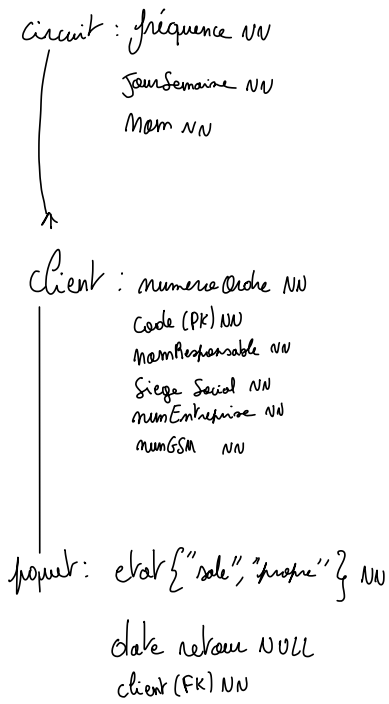 circuit : fréquence NN
JourSemaine NN
Nom NN
client : numeroOrdre NN
Code (PK) NN
nomResponsable NN
Siege Social NN
numEntreprise NN
numGSM NN
paquet : etat {"sale", "propre"} NN
date retour NULL
client (FK) NN